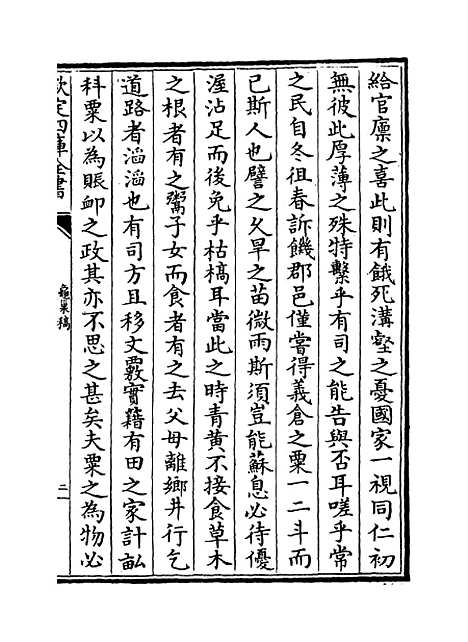 給官廪之喜此則有餓死溝壑之憂國家一視同仁初
無彼此厚薄之殊特繫乎有司之能告與否耳嗟乎常
之民自冬徂春訴饑郡邑僅嘗得義倉之粟一二斗而
已斯人也譬之久旱之苗微雨斯須豈能蘇息必待優
渥沾足而後免乎枯槁耳當此之時青黄不接食草木
之根者有之鬻子女而食者有之去父母離鄉井行乞
道路者滔滔也有司方且移文覈實籍有田之家計畝
科粟以為賑卹之政其亦不思之甚矣夫粟之為物必
欽定四庫全書
龜巢稿
二